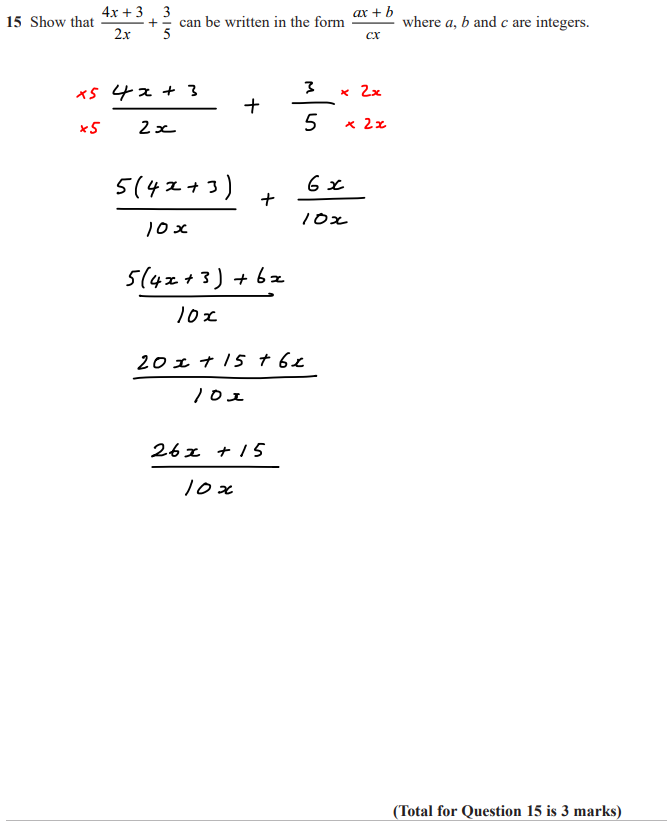 15 Show that (4x + 3)/(2x) + 3/5 can be written in the form (ax + b)/(cx) where a, b and c are integers.
×5 (4x + 3) / ×5 (2x) + 3 × 2x / 5 × 2x
5(4x+3)/10x + 6x/10x
(5(4x+3) + 6x)/10x
(20x + 15 + 6x)/10x
(26x + 15)/10x
(Total for Question 15 is 3 marks)